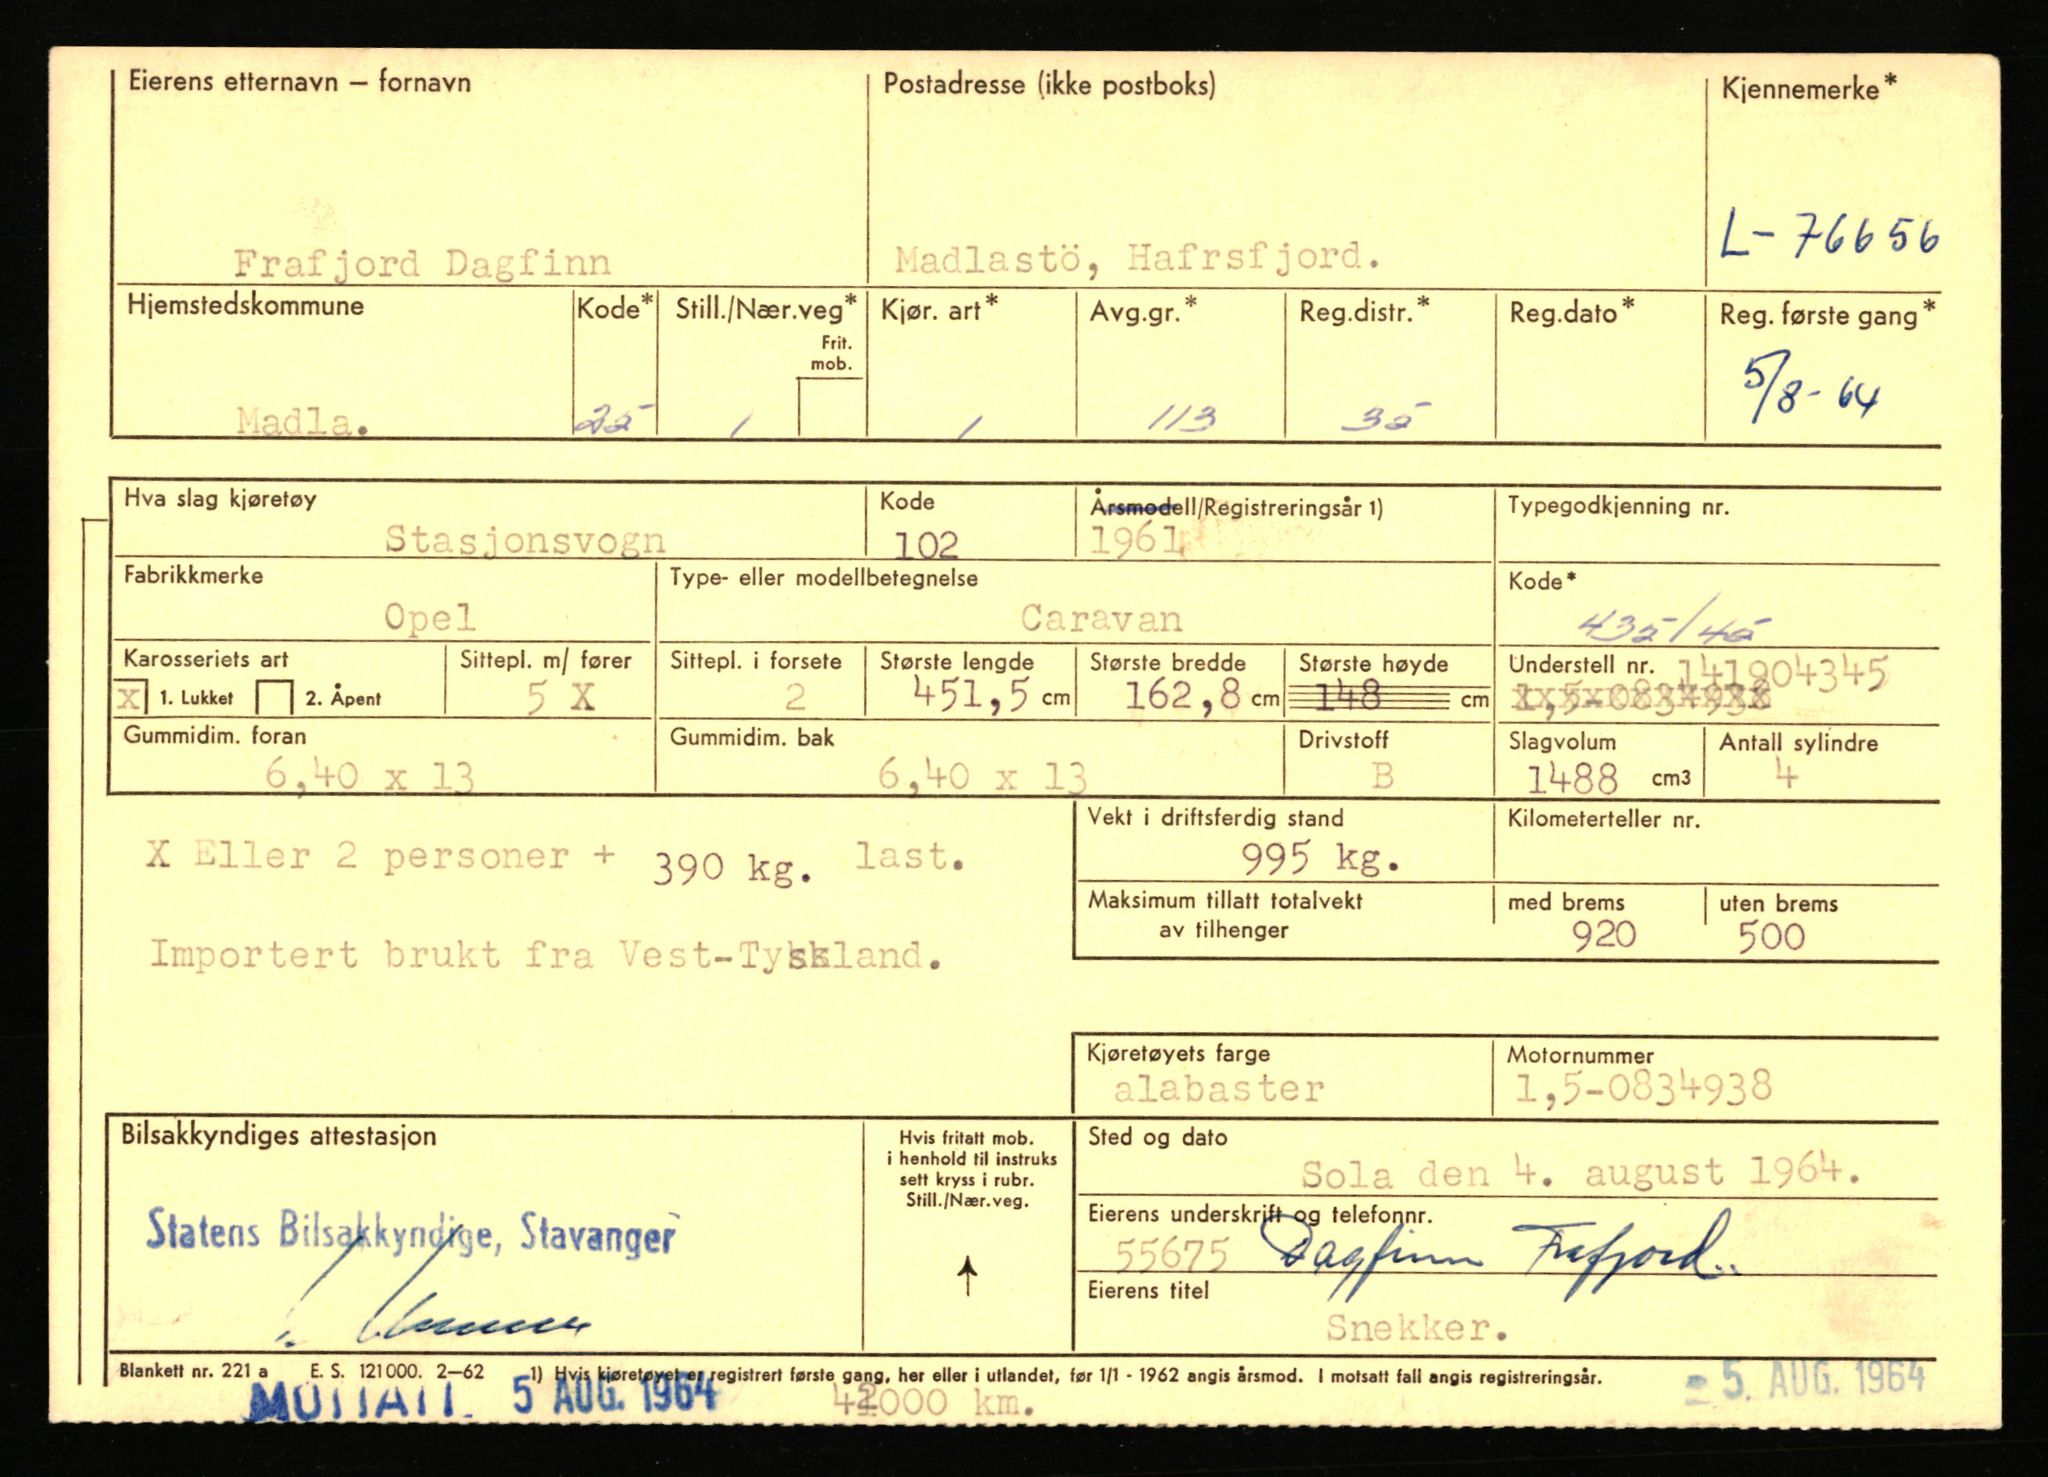 Eierens etternavn – fornavn
Postadresse (ikke postboks)
Kjennemerke*
Frafjord Dagfinn
Madlastö, Hafrsfjord.
L- 76656
Hjemstedskommune
Kode*
Still./Nær.veg*
Frit. mob.
Kjør. art*
Avg.gr.*
Reg.distr.*
Reg.dato*
Reg. første gang*
Madla.
25
1
1
113
35
5/8-64
Hva slag kjøretøy
Kode
Årsmodell/Registreringsår 1)
Typegodkjenning nr.
Stasjonsvogn
102
1961
Fabrikkmerke
Type- eller modellbetegnelse
Kode*
Opel
Caravan
435/45
Karosseriets art
Sittepl. m/ fører
Sittepl. i forsete
Største lengde
Største bredde
Største høyde
Understell nr. 141904345
x 1. Lukket
2. Åpent
5 X
2
451,5 cm
162,8 cm
148 cm
1,5-0834938
Gummidim. foran
Gummidim. bak
Drivstoff
Slagvolum
Antall sylindre
6,40 x 13
6,40 x 13
B
1488 cm3
4
X Eller 2 personer + 390 kg. last.
Vekt i driftsferdig stand
995 kg.
Kilometerteller nr.
Maksimum tillatt totalvekt av tilhenger
med brems
920
uten brems
500
Importert brukt fra Vest-Tyskland.
Kjøretøyets farge
Motornummer
alabaster
1,5-0834938
Bilsakkyndiges attestasjon
Hvis fritatt mob.
i henhold til instruks
sett kryss i rubr.
Still./Nær.veg.
Sted og dato
Sola den 4. august 1964.
Statens Bilsakkyndige, Stavanger
Eierens underskrift og telefonnr.
55675 Dagfinn Frafjord..
Eierens titel
Snekker.
Blankett nr. 221 a E. S. 121000. 2–62 1) Hvis kjøretøyet er registrert første gang, her eller i utlandet, før 1/1 - 1962 angis årsmod. I motsatt fall angis registreringsår.
MOTTATT 5 AUG. 1964
42000 km.
- 5. AUG. 1964